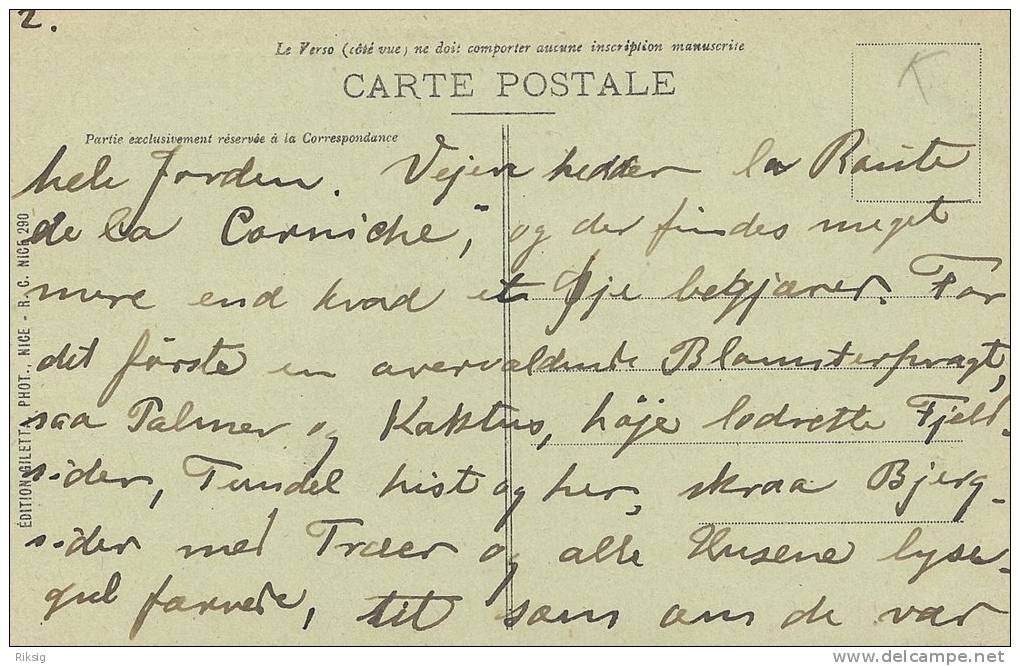 2.
Le Verso (côté vue) ne doit comporter aucune inscription manuscrite
CARTE POSTALE
K
Partie exclusivement réservée à la Correspondance
hele Jorden. Vejen hedder la Route
de la Corniche," og der findes meget
mere end hvad et Øje begjærer. For
det förste en overvældende Blomsterpragt,
saa Palmer og Kaktus, höje lodrette Fjeld-
sider, Tunnel hist og her, skraa Bjerg-
sider med Træer og alle Husene lyse-
gul farvede, tit som om de var
ÉDITION GILETTA, PHOT., NICE - R. C. NICE 290
Riksig
http://www.delcampe.net